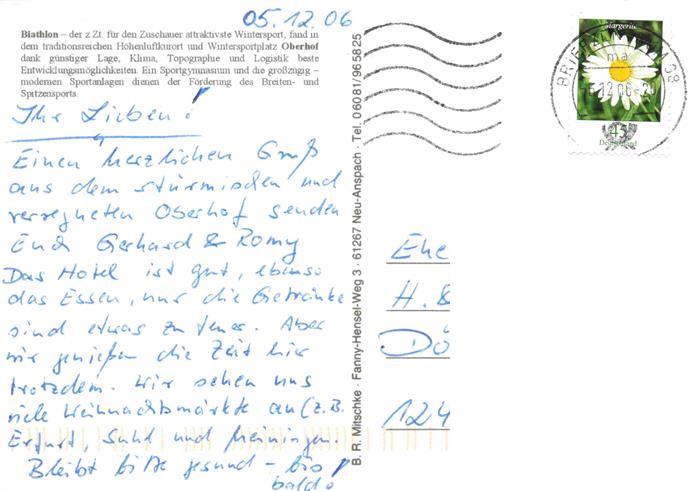 05.12.06
Biathlon – der z.Zt. für den Zuschauer attraktivste Wintersport, fand in
dem traditionsreichen Höhenluftkurort und Wintersportplatz Oberhof
dank günstiger Lage, Klima, Topographie und Logistik beste
Entwicklungsmöglichkeiten. Ein Sportgymnasium und die großzügig –
modernen Sportanlagen dienen der Förderung des Breiten- und
Spitzensports.
Ihr Lieben!
Einen herzlichen Gruß
aus dem stürmischen und
verregneten Oberhof senden
Euch Gerhard & Romy
Das Hotel ist gut, ebenso
das Essen, nur die Getränke
sind etwas zu teuer. Aber
wir genießen die Zeit hier
trotzdem. Wir sehen uns
viele Weihnachtsmärkte an (z.B.
Erfurt, Suhl und Meiningen.
Bleibt bitte gesund – bis
bald!
B. R. Mitschke · Fanny-Hensel-Weg 3 · 61267 Neu-Anspach · Tel. 06081/965825
Margerite
45
Deutschland
BRIEF
12.06-2
Ehe
H. &
Dö
124